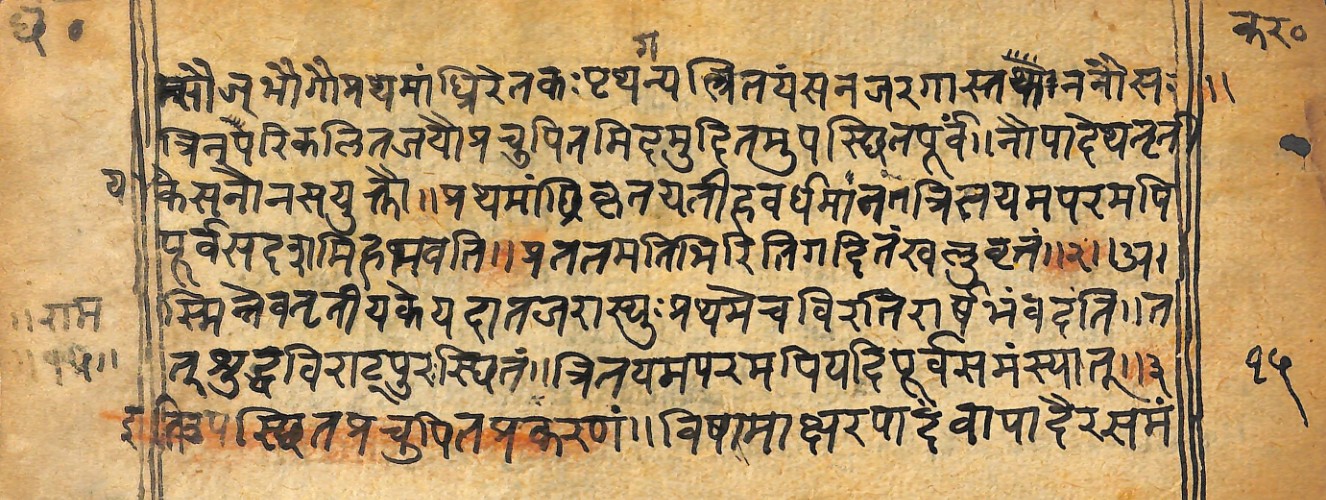 कर०
ग
त्सौज्भौगौप्रथमांघ्रिरेतकः ष्टथन्यत्त्रितयंसनजरगास्तथौननौसः ॥
त्रिनपरिकलितजयौप्रचुपितमिदमुदितमुपस्छितपूर्वं॥ नौपादेथतृती
य केसनौनसयुक्तौ॥ प्रथमांघ्रिकृतयतीहवर्धमानंतत्रितयमपरमपि
पूर्वसदशमिहभवति॥ प्रततमतिभिरितिगदितंखलुवृत्तं॥२। अ।
स्मिन्नेवतृतीयकेयदातजरास्युः प्रथमेचविरतिरार्षभंवदंति॥ त
॥राम
त्शुद्धविराट्पुरःस्छितं॥ त्रितयमपरमपियदिपूर्वसमंस्यात्॥३
१५
इतिउपस्छितप्रचुपितप्रकरणं॥ विषमाक्षरपादंवापादैरसमं